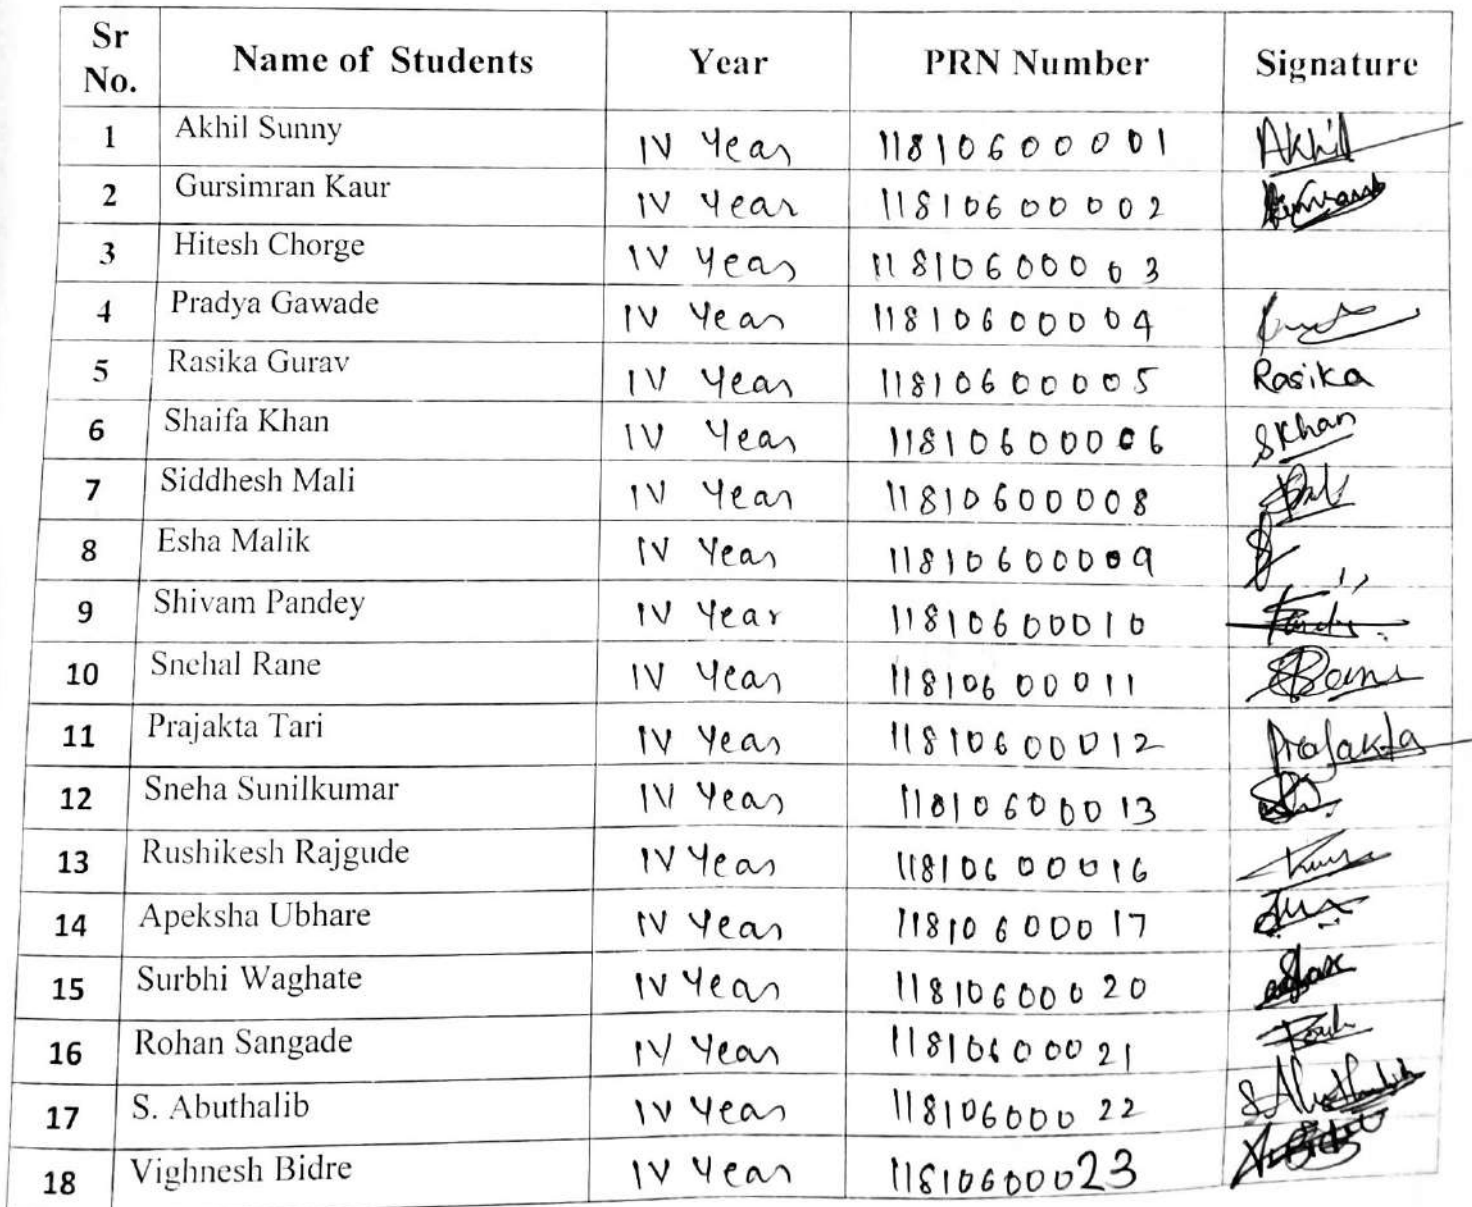 Sr No. Name of Students Year PRN Number Signature
1 Akhil Sunny IV Year 11810600001 Akhil
2 Gursimran Kaur IV Year 11810600002
3 Hitesh Chorge IV Year 11810600003
4 Pradya Gawade IV Year 11810600004
5 Rasika Gurav IV Year 11810600005 Rasika
6 Shaifa Khan IV Year 11810600006 SKhan
7 Siddhesh Mali IV Year 11810600008
8 Esha Malik IV Year 11810600009
9 Shivam Pandey IV Year 11810600010
10 Snehal Rane IV Year 11810600011
11 Prajakta Tari IV Year 11810600012 Prajakta
12 Sneha Sunilkumar IV Year 11810600013
13 Rushikesh Rajgude IV Year 11810600016
14 Apeksha Ubhare IV Year 11810600017
15 Surbhi Waghate IV Year 11810600020
16 Rohan Sangade IV Year 11810600021
17 S. Abuthalib IV Year 11810600022 S Abuthalib
18 Vighnesh Bidre IV Year 11810600023